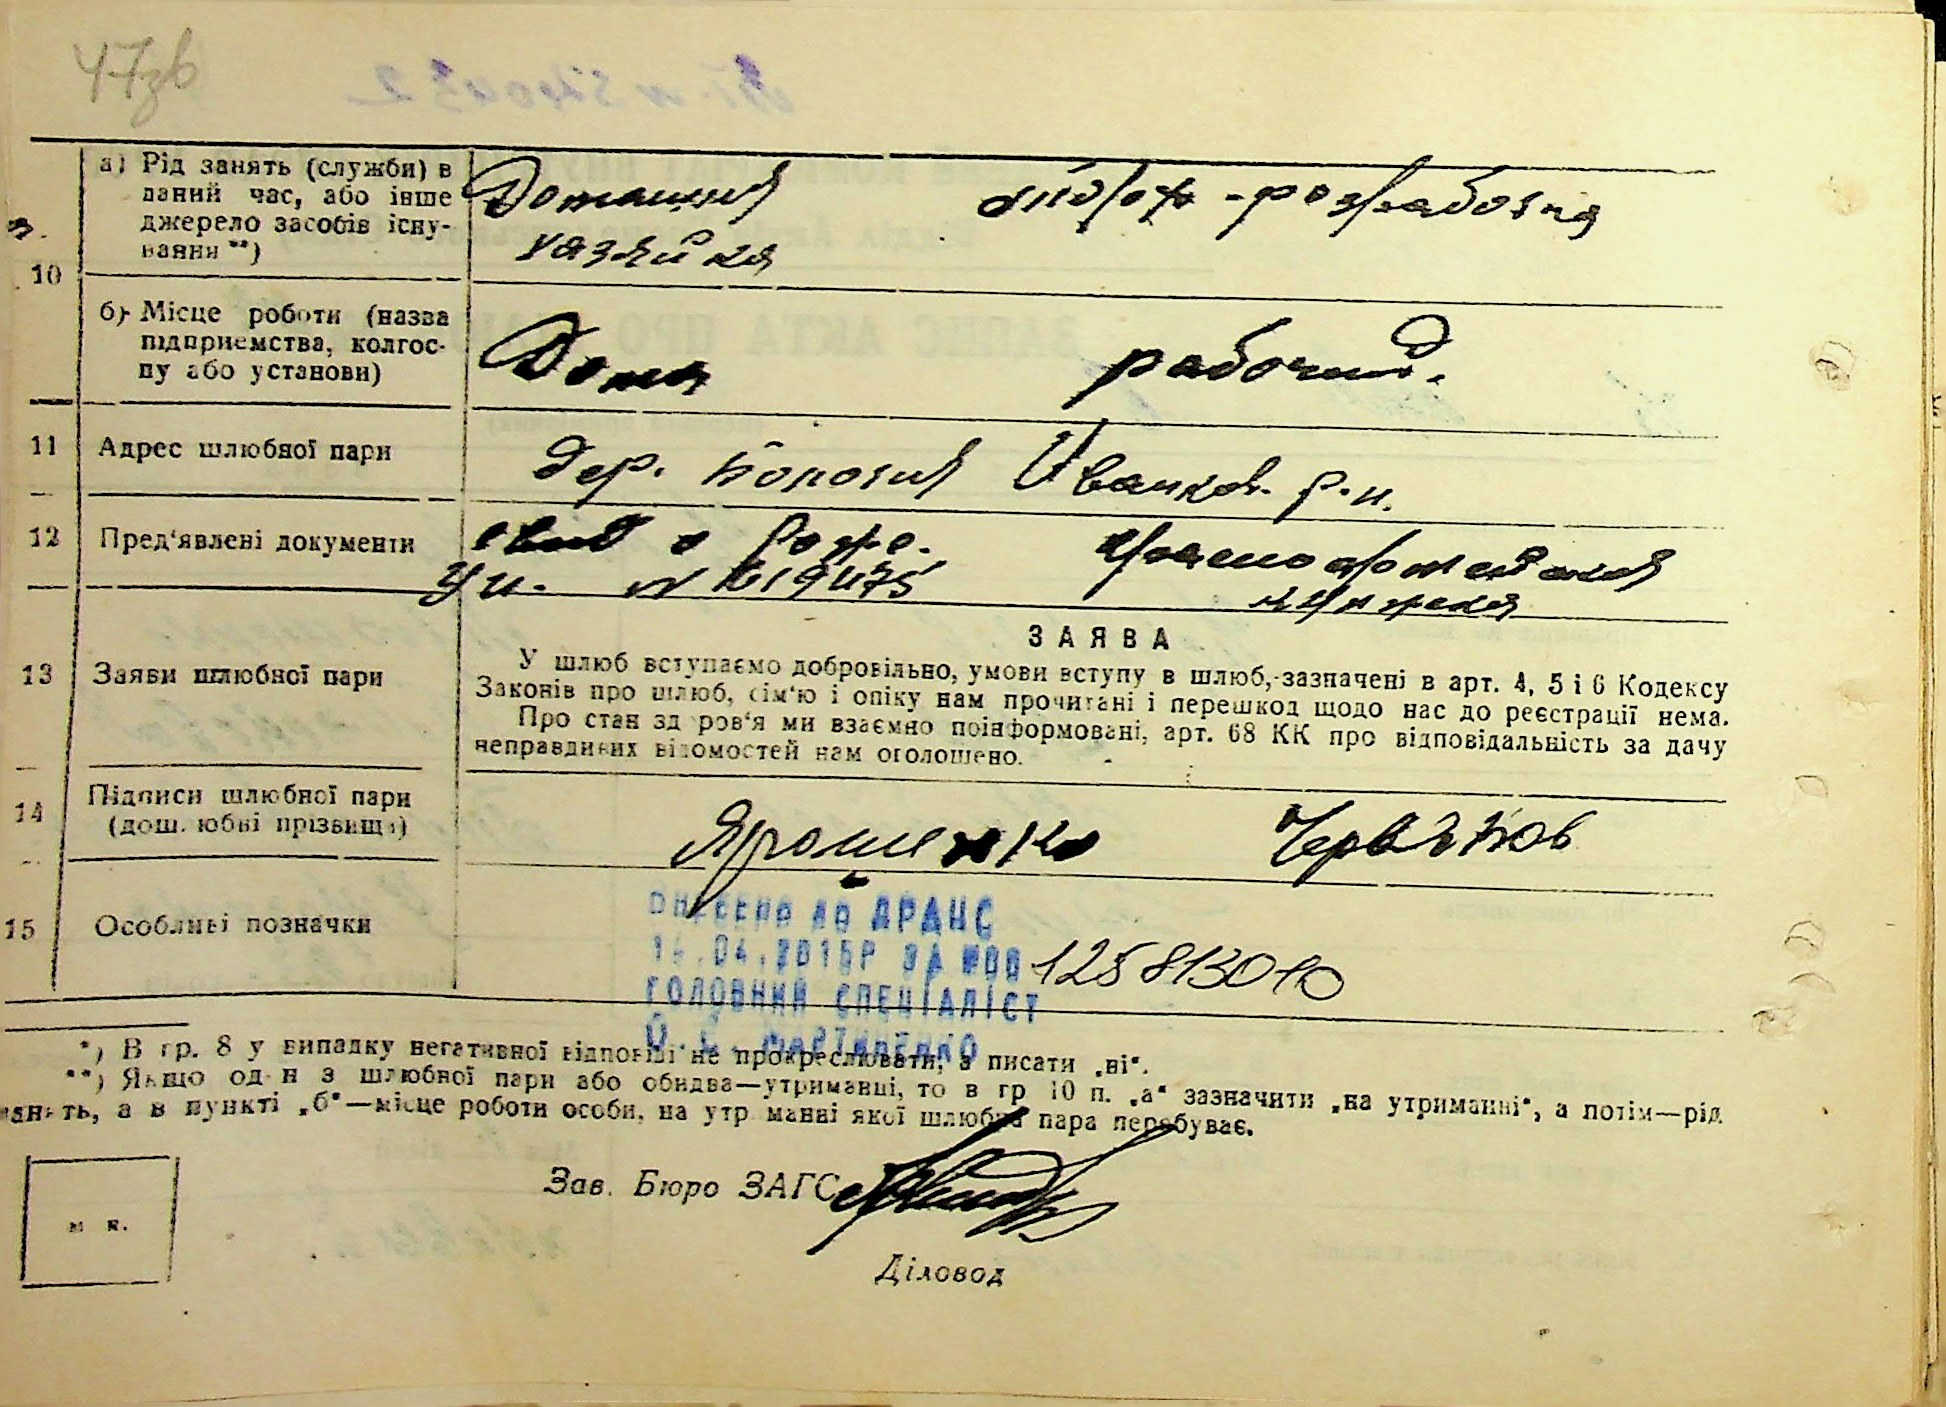 47зв
а) Рід занять (служби) в
даний час, або інше
джерело засобів існу-
вання **)
Домашняя
хазяйка
торфо-розработка
10
б) Місце роботи (назва
підприємства, колгос-
пу або установи)
Дома
рабочий.
11 Адрес шлюбної пари
дер. Иванков. р-н.
12 Пред'явлені документи
свид о рожд.
N 619475
красноармейская
книжка
ЗАЯВА
13 Заяви шлюбної пари
У шлюб вступаємо добровільно, умови вступу в шлюб, зазначені в арт. 4, 5 і 6 Кодексу
Законів про шлюб, сім'ю і опіку нам прочитані і перешкод щодо нас до реєстрації нема.
Про стан здоров'я ми взаємно поінформовані, арт. 68 КК про відповідальність за дачу
неправдивих відомостей нам оголошено.
14 Підписи шлюбної пари
(дошлюбні прізвища)
Ярошенко Червяков
15 Особливі позначки
ВНЕСЕНО ДО ДРАЦС
.04.2015Р ЗА №00 125813010
ГОЛОВНИЙ СПЕЦІАЛІСТ
О. С. МАРТИНЕНКО
*) В гр. 8 у випадку негативної відповіді не прокреслювати, а писати „ні“.
**) Якщо один з шлюбної пари або обидва—утриманці, то в гр 10 п. „а“ зазначити „на утриманні“, а потім—рід
занять, а в пункті „б“—місце роботи особи, на утриманні якої шлюбна пара перебуває.
Зав. Бюро ЗАГС
м п.
Діловод